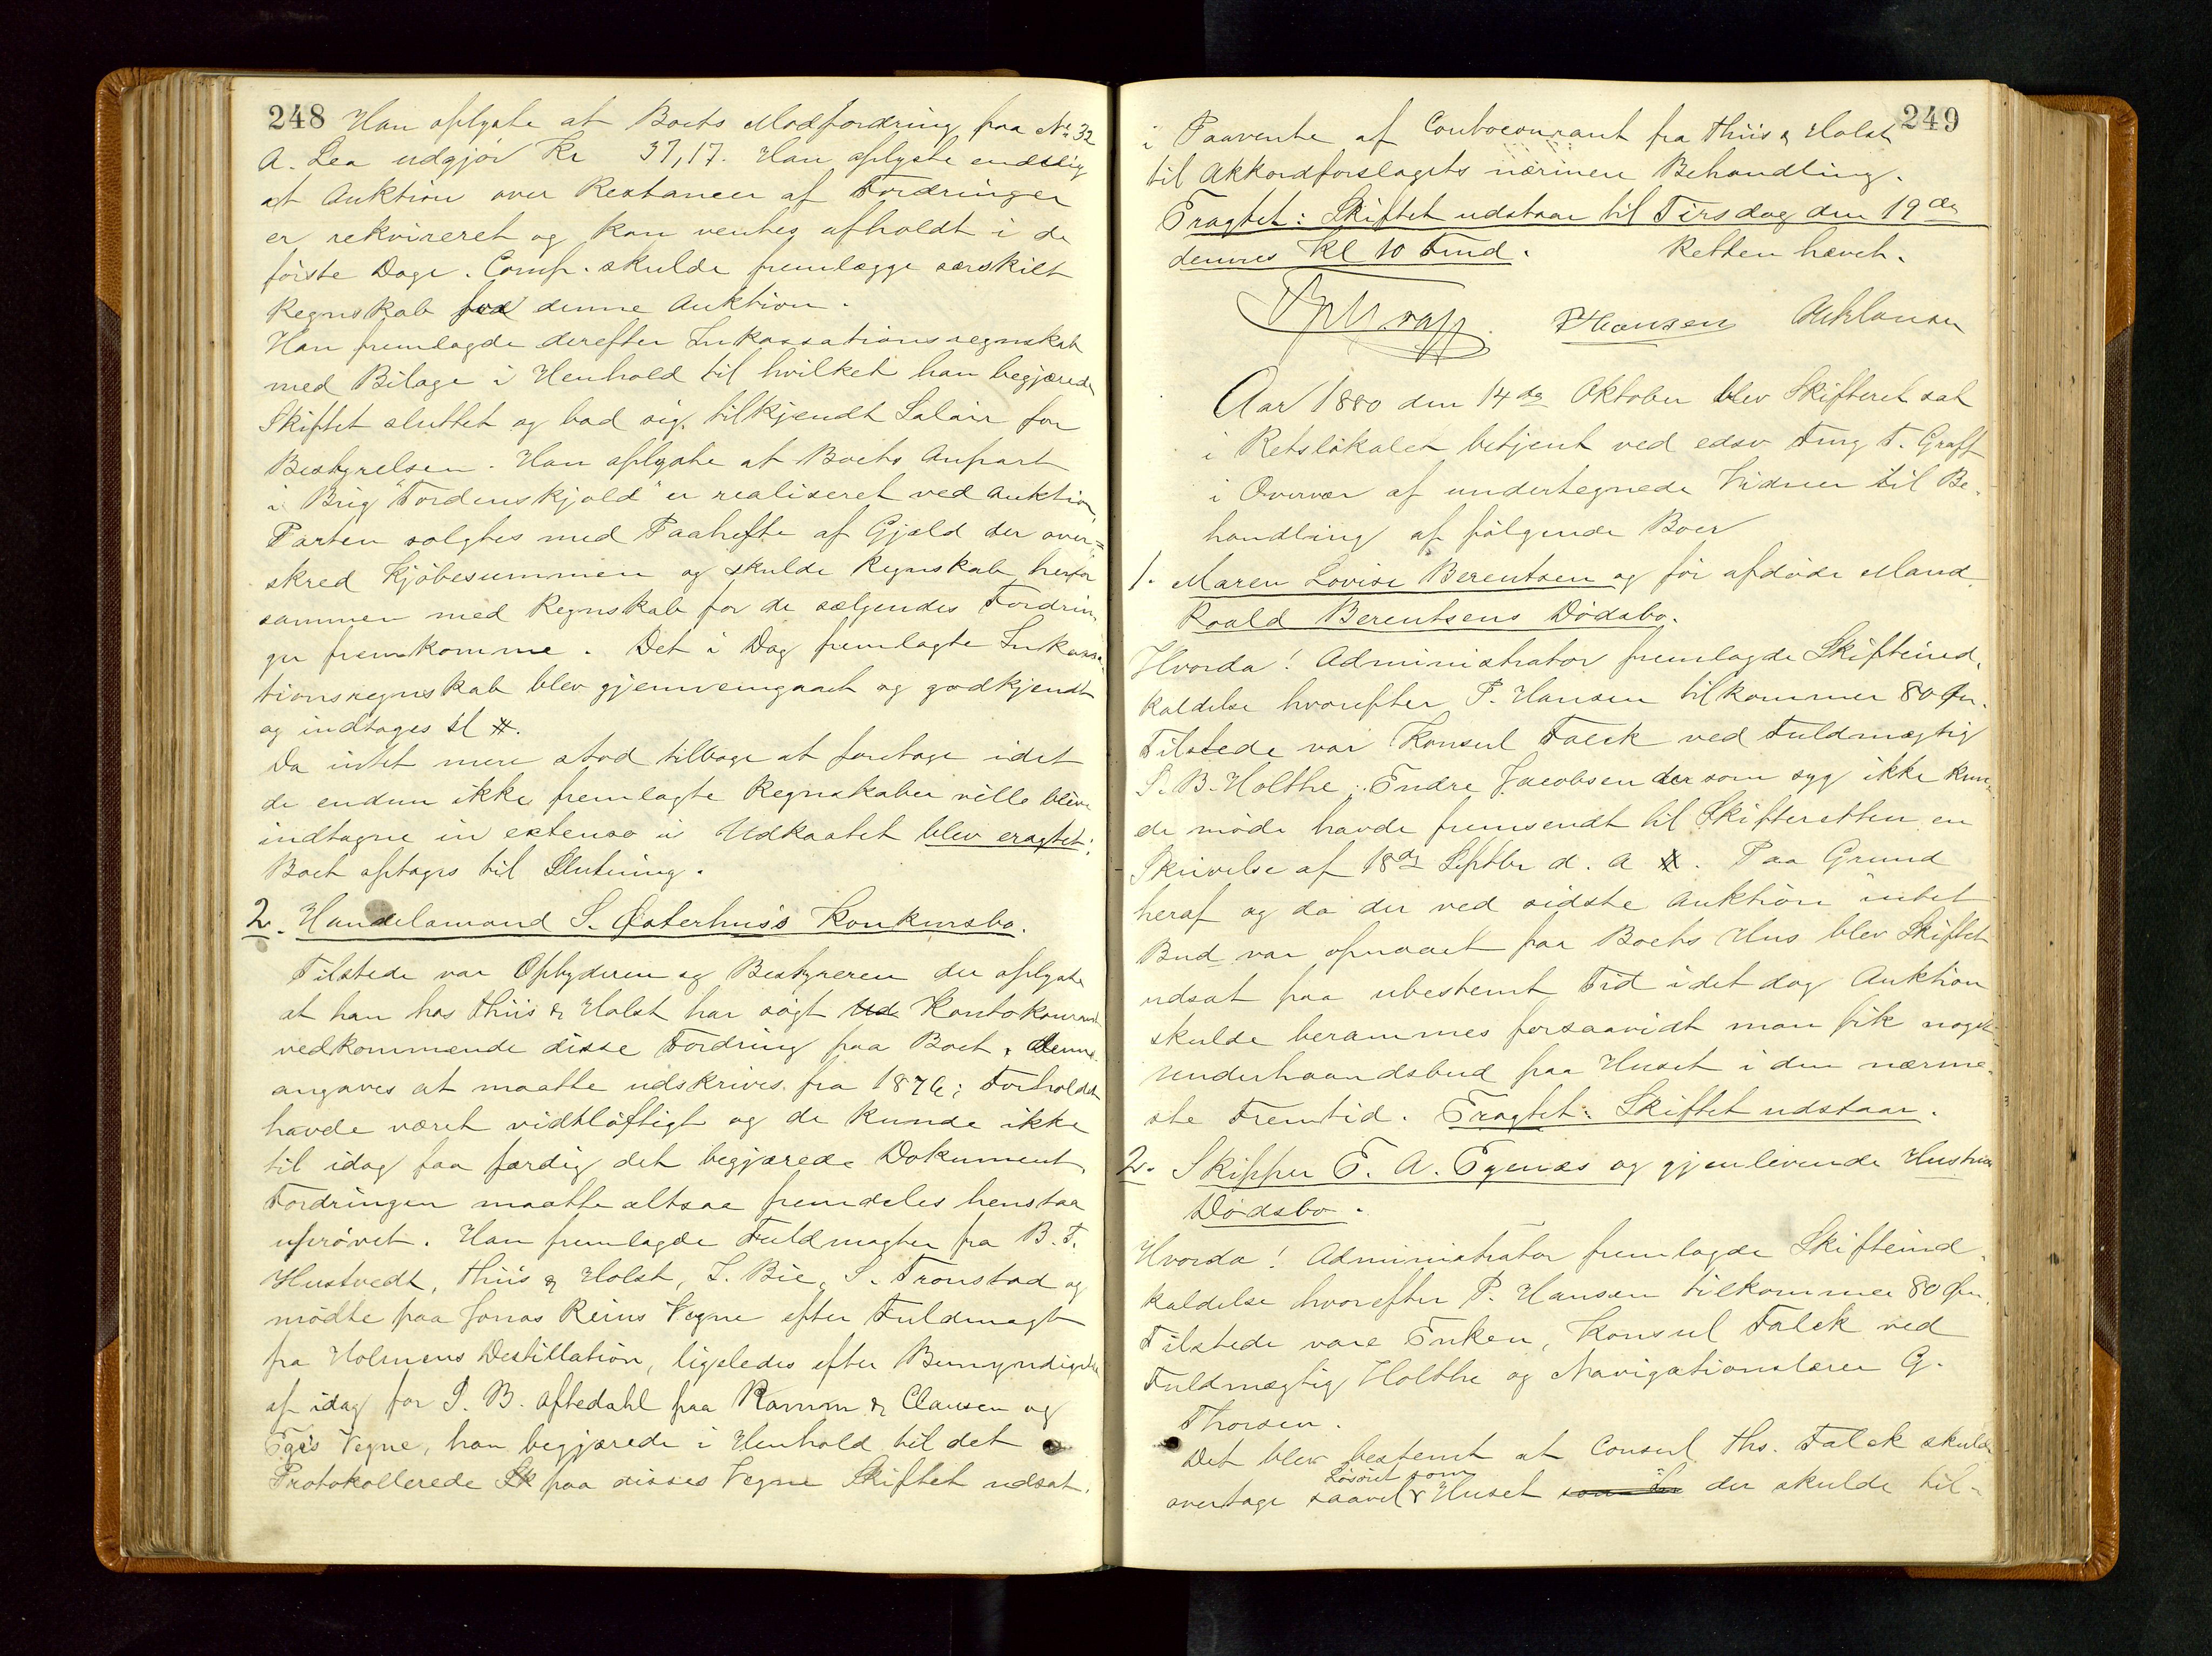 248 Han oplyste at Boets Modfordring paa No 32
A. Lea udgjør Kr 37,17. Han oplyste endelig
at Auktion over Restancer af Fordringer
er rekvireret og kan ventes afholdt i de
første Dage. Comp. skulde fremlægge særskilt
Regnskab for denne Auktion.
Han fremlagde derefter Inkassationsregnskab
med Bilage i Henhold til hvilket han begjærede
Skiftet sluttet og bad sig tilkjendt Salair for
Bestyrelsen. Han oplyste at Boets Anpart
i Brig "Tordenskjold" er realiseret ved Auktion,
Parten solgtes med Paahefte af Gjæld der over=
skred Kjøbesummen og skulde Regnskab herfor
sammen med Regnskab for de sælgendes Fordrin
ger fremkomme. Det i Dag fremlagte Inkassa
tionsregnskab blev gjennemgaaet og godkjendt
og indtages sl #.
Da intet mere stod tilbage at foretage idet
de endnu ikke fremlagte Regnskaber ville blive
indtagne in extenso i Udkastet blev eragtet:
Boet optages til Slutning.
2. Handelsmand S. Østerhus's Konkursbo.
Tilstede var Opbyderen og Bestyreren der oplyste
at han hos Thiis & Holst har søgt Ud Kontokourant
vedkommende disse Fordring paa Boet, denne
angaves at maatte udskrives fra 1876; Forholdet
havde været vidtløftigt og de kunde ikke
til idag faa færdig det begjærede Dokument,
Fordringen maatte altsaa fremdeles henstaa
uprøvet. Han fremlagde Fuldmagter fra B. T.
Hustvedt, Thiis & Holst, I. Bie, S. Tronstad og
mødte paa Jonas Reins Vegne efter Fuldmagt
fra Holmens Destillation, ligeledes efter Bemyndigelse
af idag for P. B. Aftedahl paa Ramm & Clausen og
Eges Vegne, han begjærede i Henhold til det
Protokollerede Sk paa disses Vegne Skiftet udsat.
249
i Paavente af Contocourant fra Thiis & Holst
til Akkordforslagets nærmere Behandling.
Eragtet: Skiftet udstaar til Tirsdag den 19de
dennes Kl 10 Fmd. Retten hævet.
P Hansen
Aar 1880 den 14de Oktober blev Skifteret sat
i Retslokalet betjent ved edsv Fmg T. Graff
i Overvær af undertegnede Vidner til Be-
handling af følgende Boer
1. Maren Lovise Berentsen og før afdøde Mand
Roald Berentsens Dødsbo.
Hvorda! Administrator fremlagde Skifteind-
kaldelse hvorefter P. Hansen tilkommer 80 Øre.
Tilstede var Konsul Falck ved Fuldmægtig
S. B. Holthe. Endre Jacobsen der som syg ikke kun
de møde havde fremsendt til Skifteretten en
Skrivelse af 18de Septbr d. A #. Paa Grund
heraf og da der ved sidste Auktion intet
Bud var opnaaet paa Boets Hus blev Skiftet
udsat paa ubestemt Tid idet dog Auktion
skulde berammes forsaavidt man fik noget
Underhaandsbud paa Huset i den nærme-
ste Fremtid. Eragtet: Skiftet udstaar.
2. Skipper E. A. Egenæs og gjenlevende Hustrus
Dødsbo.
Hvorda! Administrator fremlagde Skifteind-
kaldelse hvorefter P. Hansen tilkommer 80 Øre.
Tilstede vare Enken, Konsul Falck ved
Fuldmægtig Holthe og Navigationslærer G.
Thorsen.
Det blev bestemt at Consul Ths. Falck skulde
Løsøret som
overtage saavel Huset der skulde til-